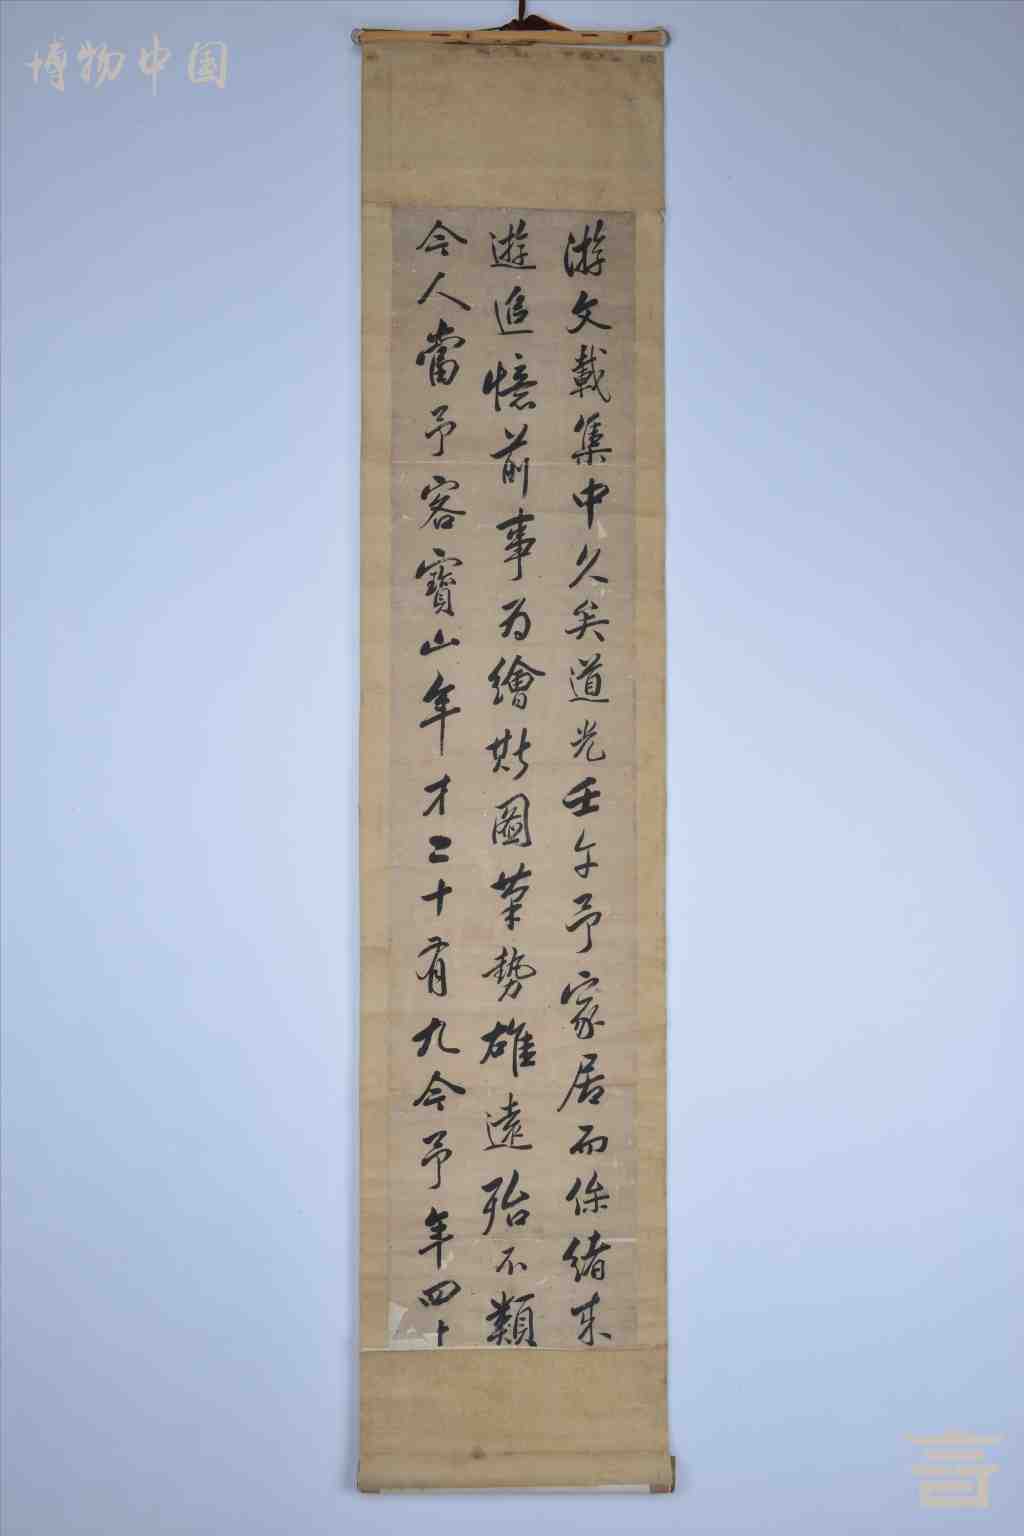 博物中国
游文載集中久矣道光壬午予家居而保緒来
遊追憶前事为繪斯圖筆勢雄遠殆不類
今人當予客寶山年才二十有九今予年四十